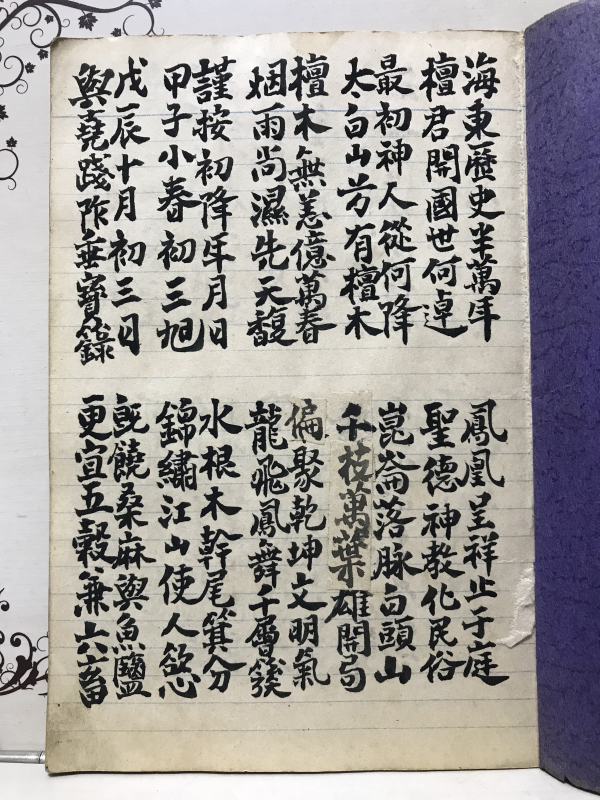 海東歷史半萬年
檀君開國世何逴
最初神人從何降
太白山芳有檀木
檀木無恙億萬春
烟雨尚濕先天馥
謹按初降年月日
甲子小春初三旭
戊辰十月初三日
與堯踐阼垂寶籙
鳳凰呈祥止于庭
聖德神教化民俗
崑崙落脉白頭山
千枝萬葉雄開局
偏聚乾坤文明氣
龍飛鳳舞千層簇
水根木幹尾箕分
錦繡江山使人慾
既饒桑麻與魚鹽
更宜五穀兼六畜